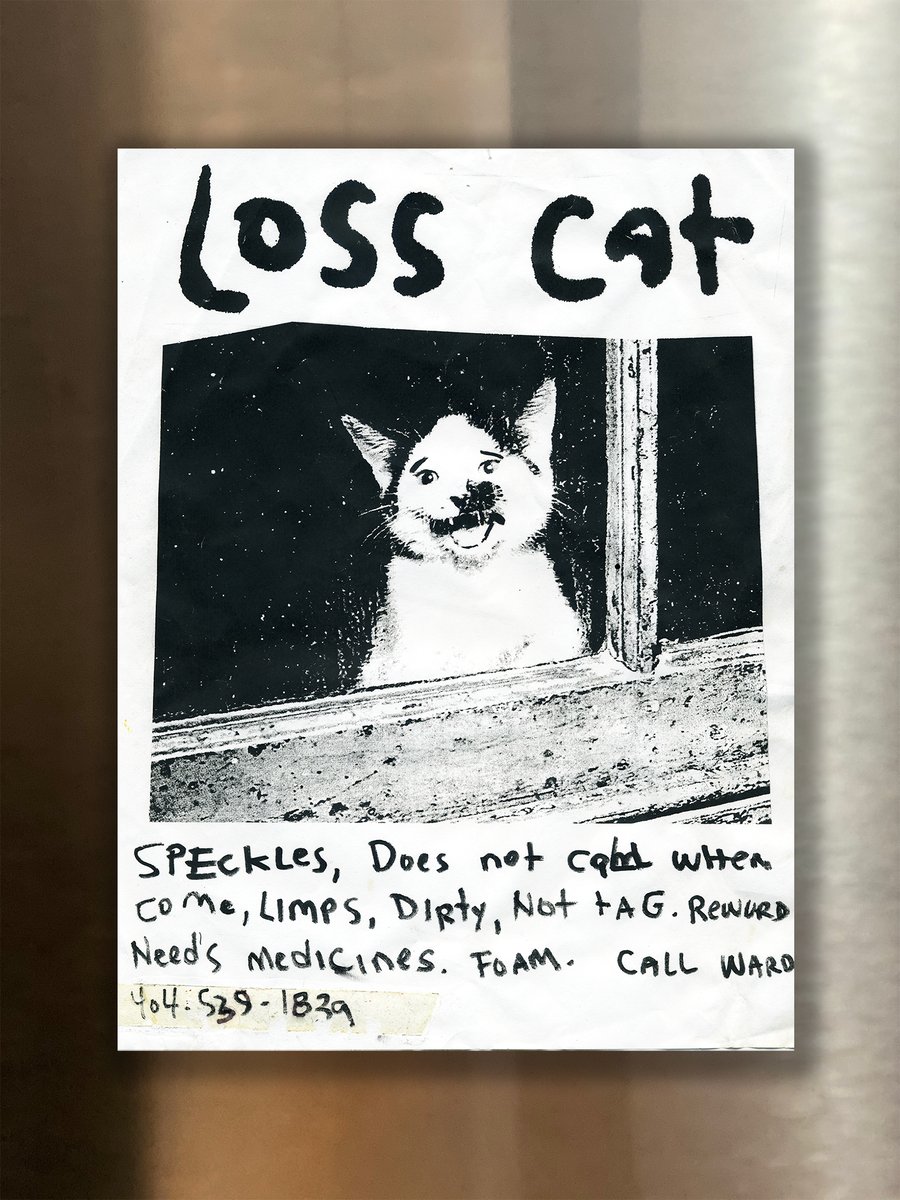 Loss Cat
SPEckLES, Does not when
come, LIMPS, DIRty, Not tAG. REWURD
Need's medICINES. FOAM. CALL WARD
404-539-1839